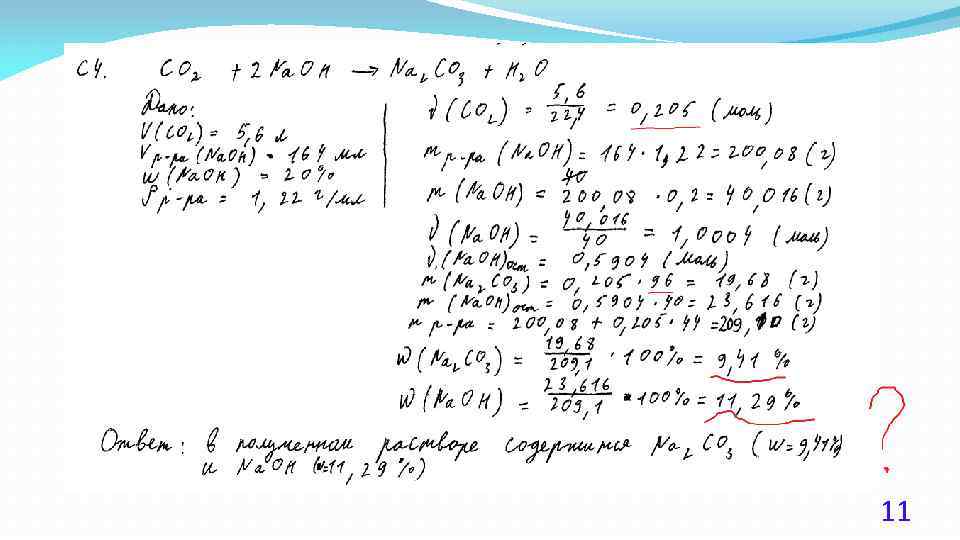 C4. CO₂ + 2 NaOH → Na₂CO₃ + H₂O
Дано:
V(CO₂) = 5,6 л
V р-ра (NaOH) = 164 мл
w (NaOH) = 20%
ρ р-ра = 1,22 г/мл
ν(CO₂) = 5,6/22,4 = 0,205 (моль)
m р-ра (NaOH) = 164 · 1,22 = 200,08 (г)
m (NaOH) = 200,08 · 0,2 = 40,016 (г)
ν (NaOH) = 40,016/40 = 1,0004 (моль)
ν (NaOH)ост = 0,5904 (моль)
m (Na₂CO₃) = 0,205 · 96 = 19,68 (г)
m (NaOH)ост = 0,5904 · 40 = 23,616 (г)
m р-ра = 200,08 + 0,205 · 44 = 209,10 (г)
W (Na₂CO₃) = 19,68/209,1 · 100% = 9,41 %
W (NaOH) = 23,616/209,1 · 100% = 11,29%
?
Ответ: в полученном растворе содержится Na₂CO₃ (w=9,41%)
и NaOH (w=11,29%)
11